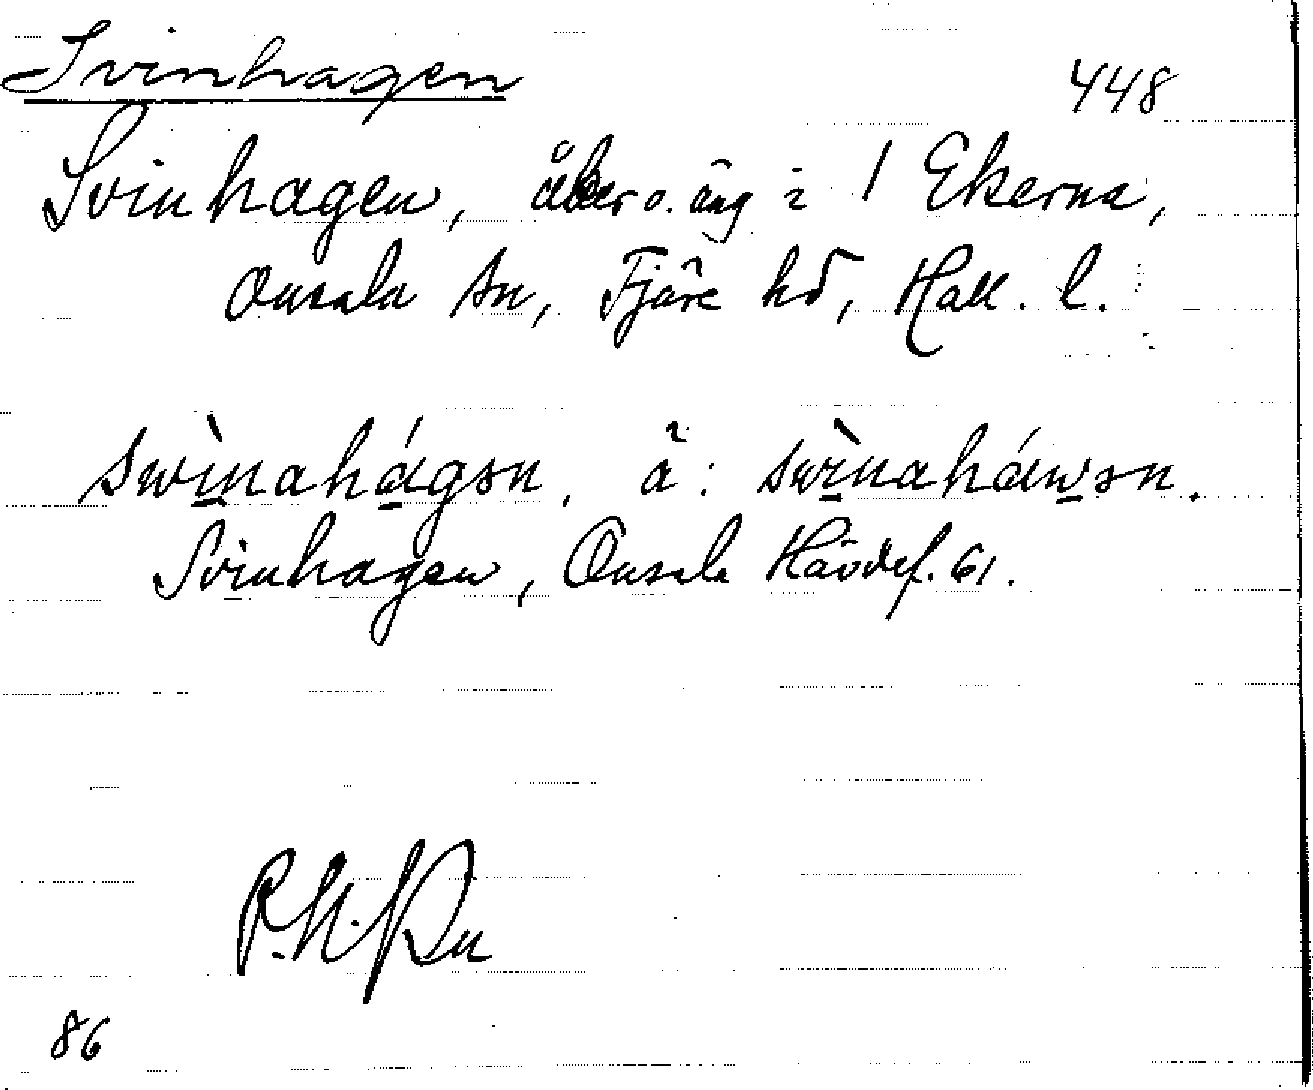 Svinhagen
448
Svinhagen, åker o. äng i 1 Ekerna,
Onsala sn, Fjäre hd, Hall. l.
swìnahágən, ä: swìnaháwən.
Svinhagen, Onsala Hävdef. 61.
86